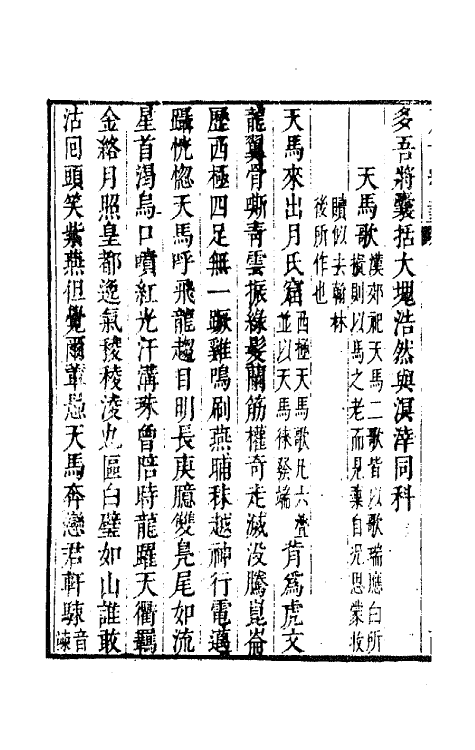 多吾將囊括大塊浩然與溟涬同科
天馬歌
漢郊祀天馬二歌皆以歌瑞應白所
擬則以馬之老而見棄自況思蒙收
贖似去翰林
後所作也
天馬來出月氏窟
西極天馬歌凡六疊
並以天馬徠發端
背為虎文
龍翼骨嘶青雲振綠髮蘭筋權奇走滅没騰崑崙
歷西極四足無一蹶雞鳴刷燕晡秣越神行電邁
躡恍惚天馬呼飛龍趨目明長庚臆雙鳧尾如流
星首渴烏口噴紅光汗溝珠曾陪時龍躍天衢羈
金絡月照皇都逸氣稜稜淩九區白璧如山誰敢
沽回頭笑紫燕但覺爾輩愚天馬奔戀君軒駷
音
竦